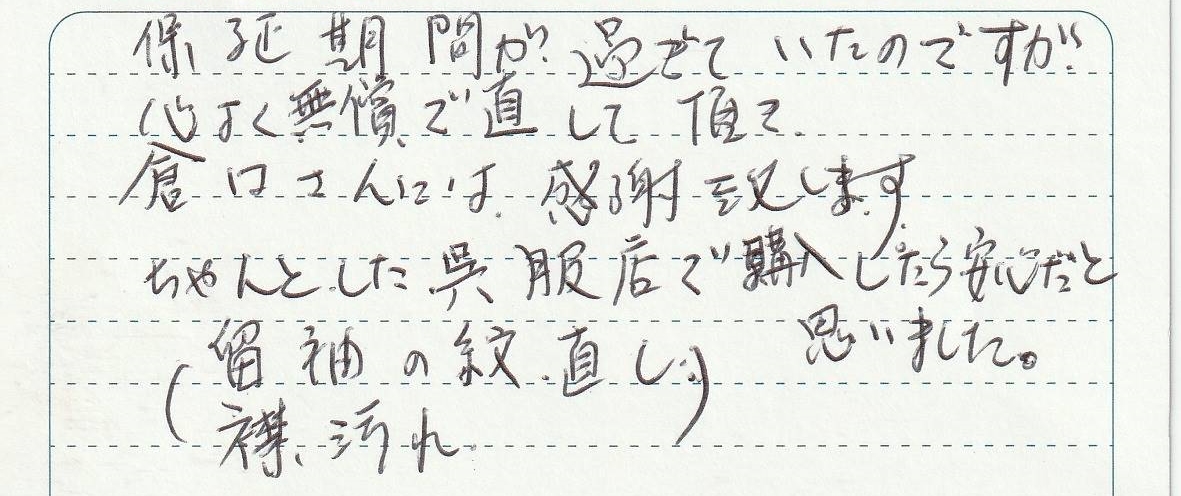 保証期間が過ぎていたのですが
心よく無償で直して頂て
倉田さんには感謝致します
ちゃんとした呉服店で購入したら安心だと
思いました。
(留袖の紋直し)
襟、汚れ